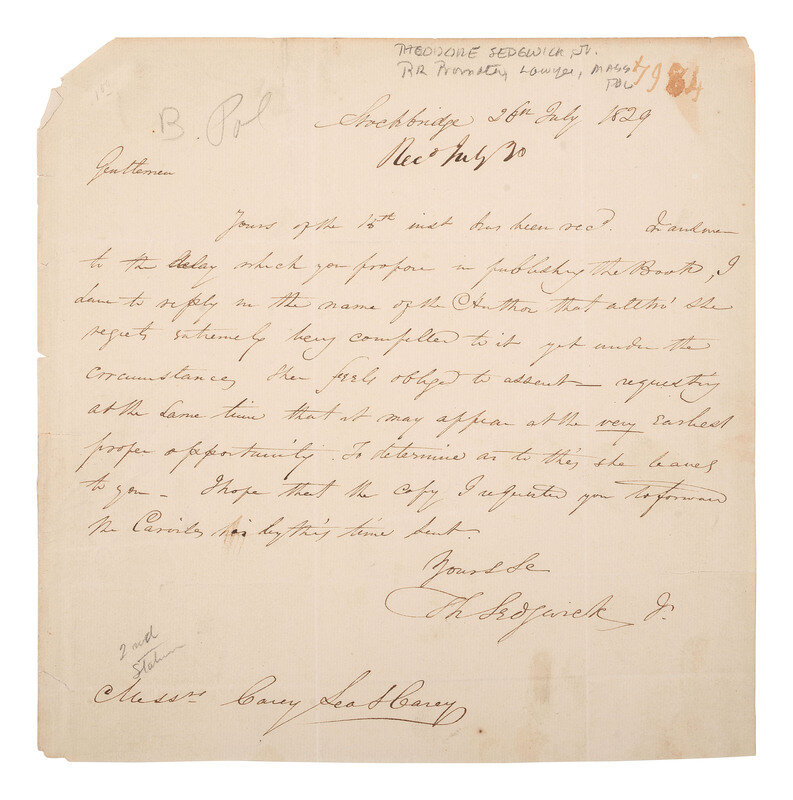 THEODORE SEDGWICK, Jr.
RR Promoter, Lawyer, MASS
Pol
7984
B. Pol
Stockbridge 26th July 1829
Recd July 30
Gentlemen
Yours of the 15th inst has been recd. In answer
to the delay which you propose in publishing the Book, I
have to reply in the name of the Author that altho' she
regrets extremely being compelled to it yet under the
circumstances she feels obliged to assent — requesting
at the same time that it may appear at the very earliest
proper opportunity. To determine as to this she leaves
to you — I hope that the copy I requested you to forward
the Carvills has by this time sent.
Yours &c
Th Sedgwick Jr
2nd
Messrs Carey Lea & Carey